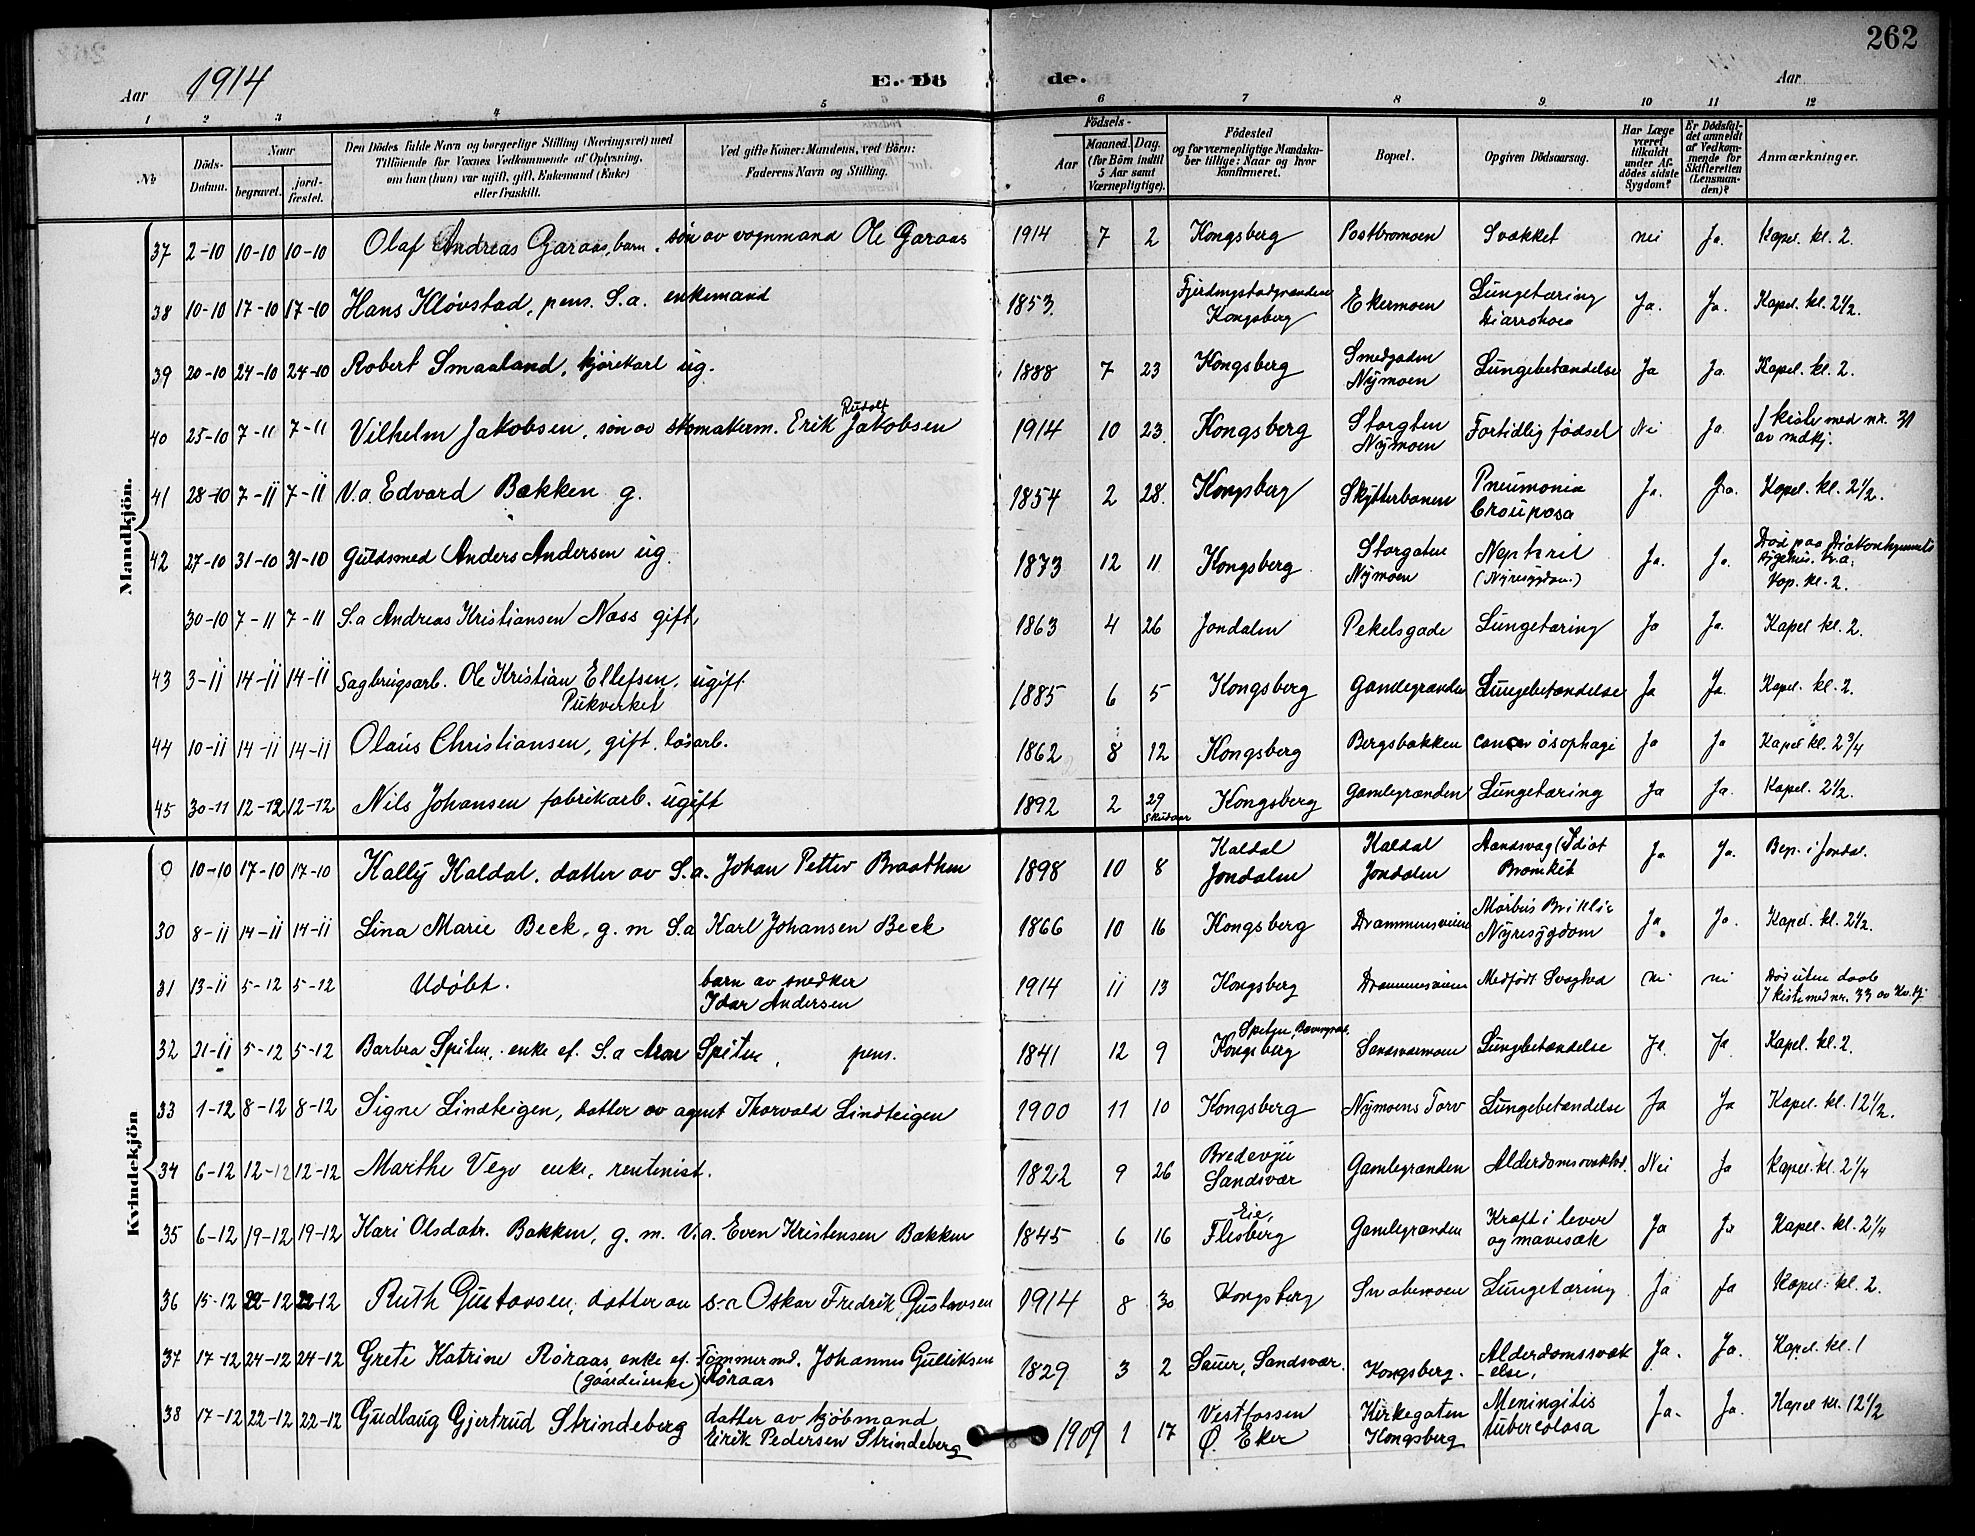 262
Aar 1914 E. Dö de. Aar
1 2 3 4 5 6 7 8 9. 10 11 12
№
Döds-Datum.
Naar
begravet.
jord-fæstet.
Den Dödes fulde Navn og borgerlige Stilling (Næringsvei) med
Tilföiende for Voxnes Vedkommende af Oplysning,
om han (hun) var ugift, gift, Enkemand (Enke)
eller fraskilt.
Ved gifte Koner: Mandens, ved Börn:
Faderens Navn og Stilling.
Födsels-
Aar
Maaned. Dag.
(for Börn indtil
5 Aar samt
Værnepligtige).
Födested
og for værnepligtige Mandska-
ber tillige: Naar og hvor
konfirmeret.
Bopæl.
Opgiven Dödsaarsag.
Har Læge
været
tilkaldt
under Af-
dödes sidste
Sygdom?
Er Dödsfal-
det anmeldt
af Vedkom-
mende for
Skifteretten
(Lensman-
den)?
Anmærkninger.
Mandkjön.
37 2-10 10-10 10-10 Olaf Andreas Garaas, barn, søn av vognmand Ole Garaas 1914 7 2 Kongsberg Postbromoen Svækket nei Ja. Kapel. kl. 2.
38 10-10 17-10 17-10 Hans Kløvstad, pens. S.a. enkemand 1853. Kongsberg Ekermoen Lungetæring Ja. Ja. Kapel. kl. 2½.
Diarrohoea
39 20-10 24-10 24-10 Robert Smaaland, kjørekarl ug. 1888 7 23 Kongsberg Smedgaden Nymoen Lungebetændelse Ja Ja. Kapel. kl. 2.
40 25-10 7-11 7-11 Vilhelm Jakobsen, søn av skomakerm. Erik Rudolf Jakobsen 1914 10 23. Kongsberg Storgten Nymoen Fortidlig fødsel Nei Ja. I kiste med nr. 31
av mdkj.
41 28-10 7-11 7-11 V.a. Edvard Bakken g. 1854 2 28. Kongsberg Skytterbanen Pneumonia Crouposa Ja. Ja. Kapel. kl. 2½.
42 27-10 31-10 31-10 Guldsmed Anders Andersen ug. 1873 12 11 Kongsberg Storgaten Nymoen Nephrit (Nyresygdom.) Ja. Ja. Død paa Diakonhjemmets
Sygehus. Kr.a.
Kap. kl. 2.
30-10 7-11 7-11 S.a Andreas Kristiansen Næss gift, 1863 4 26 Jondalen Pekelsgade Lungetæring Ja Ja. Kapel kl. 2.
43 3-11 14-11 14-11 Sagbrugsarb. Ole Kristian Ellefsen, ugift. 1885 6 5 Kongsberg Gamlegrænden Lungebetændelse Ja Ja. Kapel. kl. 2.
Pukverket
44 10-11 14-11 14-11 Olaus Christiansen, gift, løsarb. 1862 8 12 Kongsberg Bergsbakken cancer øsophagi Ja Ja Kapel kl. 2¾
45 30-11 12-12 12-12 Nils Johansen fabrikarb. ugift 1892 2 29 skudaar Kongsberg Gamlegrænden Lungetæring Ja Ja. Kapel. 2½.
Kvindekjön
0 10-10 17-10 17-10 Kally Kaldal, datter av S.a. Johan Petter Braathen 1898 10 8 Kaldal Jondalen Kaldal Jondalen Aandsvag (Idiot Bronkit Ja Ja. Beg. i Jondal.
30 8-11 14-11 14-11 Lina Marie Beck, g. m S.a Karl Johansen Beck 1866 10 16 Kongsberg Drammensveien Nyresygdom Ja. Ja. Kapel. kl. 2½.
31 13-11 5-12 5-12 Udøbt. barn av snedker Idar Andersen 1914 11 13 Kongsberg Drammensveien Medfødt Svaghed nei nei Død uten daab
I kiste med nr. 33 av Kv.kj.
32 21-11 5-12 5-12 Barbra Spiten, enke ef. S.a Aron Spiten, pens. 1841 12 9 Kongsberg Sandsværmoen Lungbetændelse Ja Ja Kapel. kl. 2.
33 1-12 8-12 8-12 Signe Lindteigen, datter av agent Thorvald Lindteigen 1900 11 10 Kongsberg Nymoens Torv Lungebetændelse Ja Ja Kapel. kl. 12½.
34 6-12 12-12 12-12 Marthe Vego enke, rentenist. 1822 9 26 Sandsvær Gamlegrænden Alderdomssvækhed. Nei Ja Kapel. kl. 2¼
35 6-12 19-12 19-12 Kari Olsdatr. Bakken, g. m. V.a. Even Kristensen Bakken 1845 6 16 Eie, Flesberg Gamlegrænden Kræft i lever og mavesæk Ja Ja Kapel. kl. 2¼
36 15-12 22-12 22-12 Ruth Gustavsen, datter av s-a Oskar Fredrik Gustavsen 1914 8 30 Kongsberg Snabemoen Lungetæring Ja Ja Kapel. kl. 2.
37 17-12 24-12 24-12 Grete Katrine Røraas, enke ef. Tømmermd. Johannes Gulliksen 1829 3 2 Sauer, Sandsvær. Kongsberg. Alderdomssvæk-else, Ja. Ja. Kapel. kl. 1
(gaardeierske) Røraas
38 17-12 22-12 22-12 Gudlaug Gjertrud Strindeberg datter av kjøbmand Eirik Pedersen Strindeberg 1909 1 17 Vestfossen Ø. Eker Kirkegaten Kongsberg Meningitis tuberculosa Ja. Ja. Kapel kl. 12½